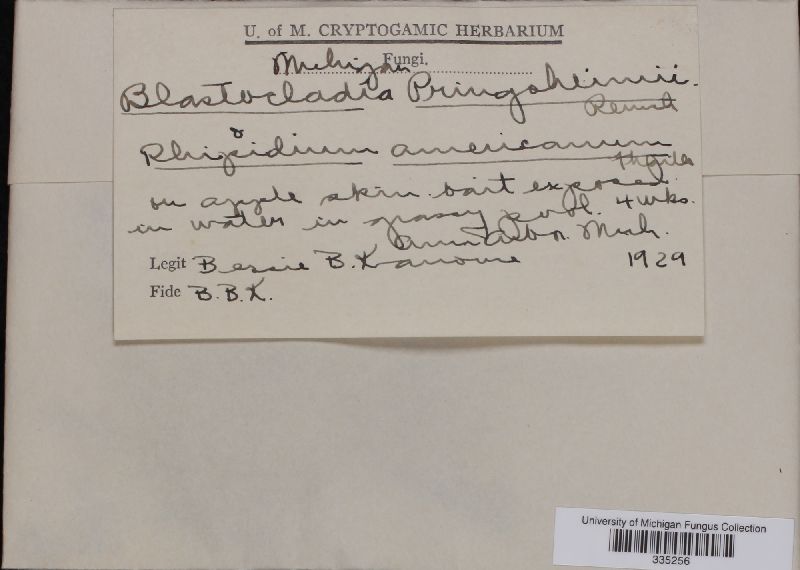 U. of M. CRYPTOGAMIC HERBARIUM
Michigan Fungi.
Blastocladia Pringsheimii.
Reinsch
&
Rhipidium americanum
Thaxter
on apple skin bait exposed
in water in grassy pool. 4 wks.
Ann Arbor. Mich.
Legit Bessie B. Kanouse 1929
Fide B.B.K.
University of Michigan Fungus Collection
335256